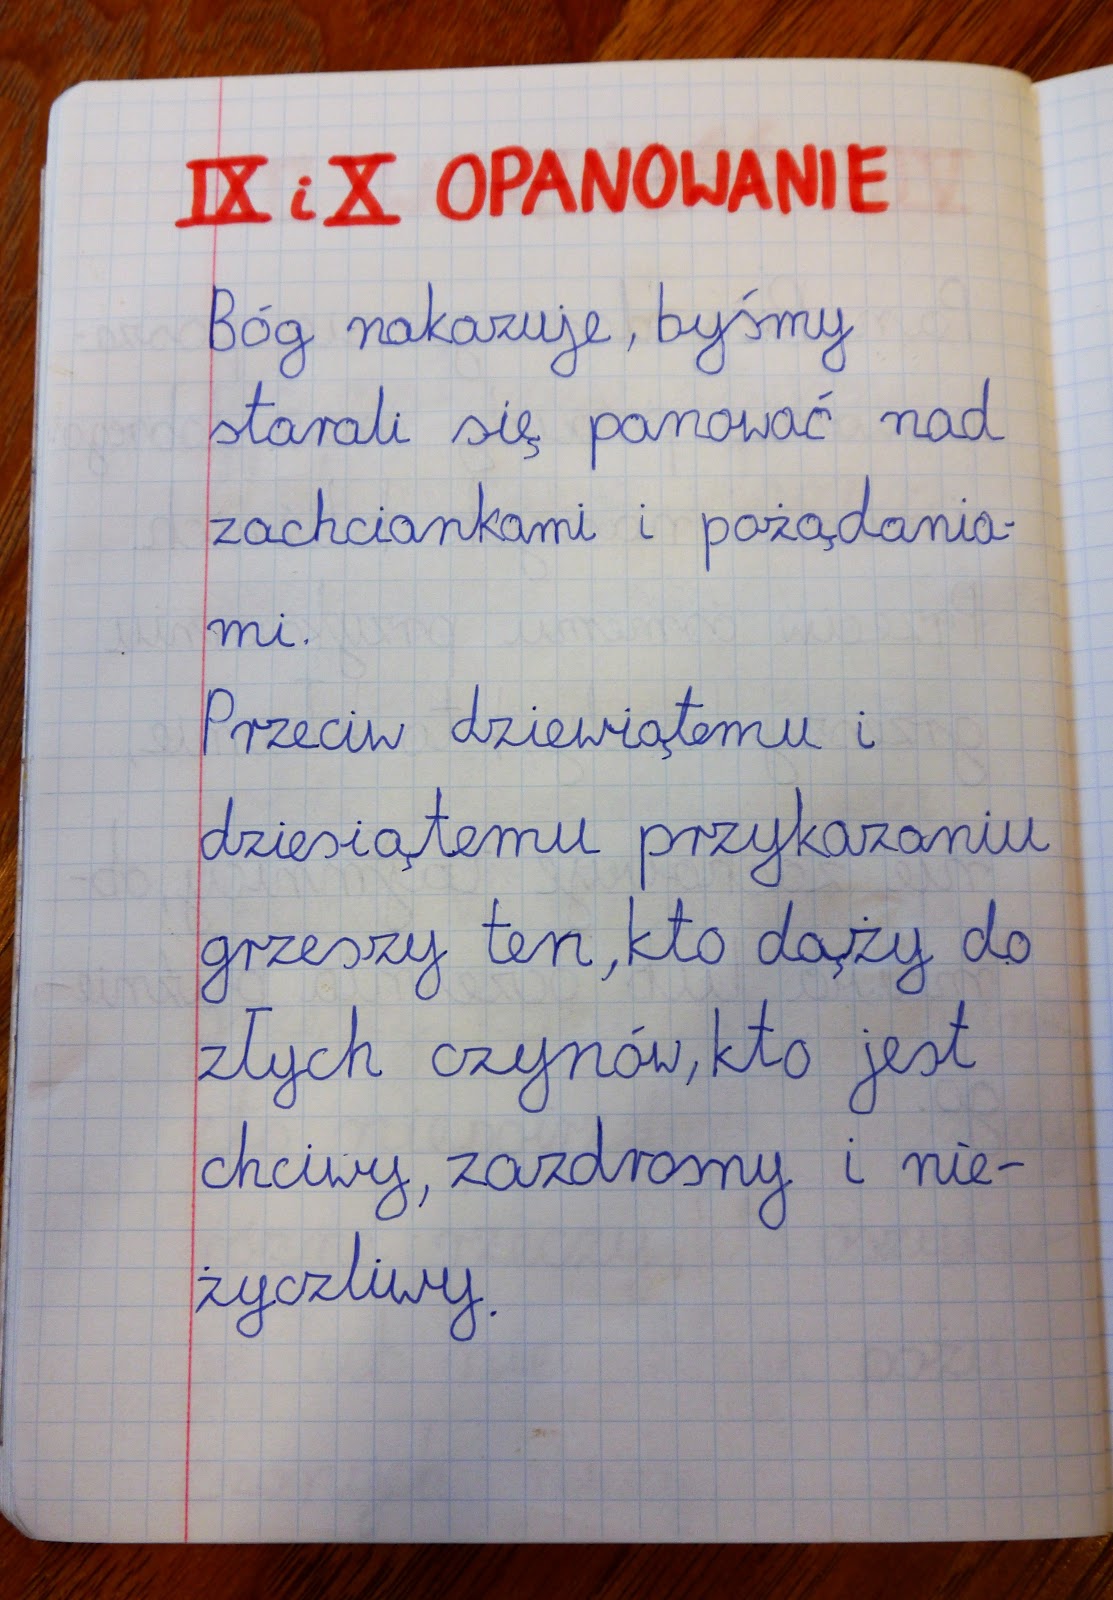 IX i X OPANOWANIE
Bóg nakazuje, byśmy
starali się panować nad
zachciankami i pożądania-
mi.
Przeciw dziewiątemu i
dziesiątemu przykazaniu
grzeszy ten, kto dąży do
złych czynów, kto jest
chciwy, zazdrosny i nie-
życzliwy.